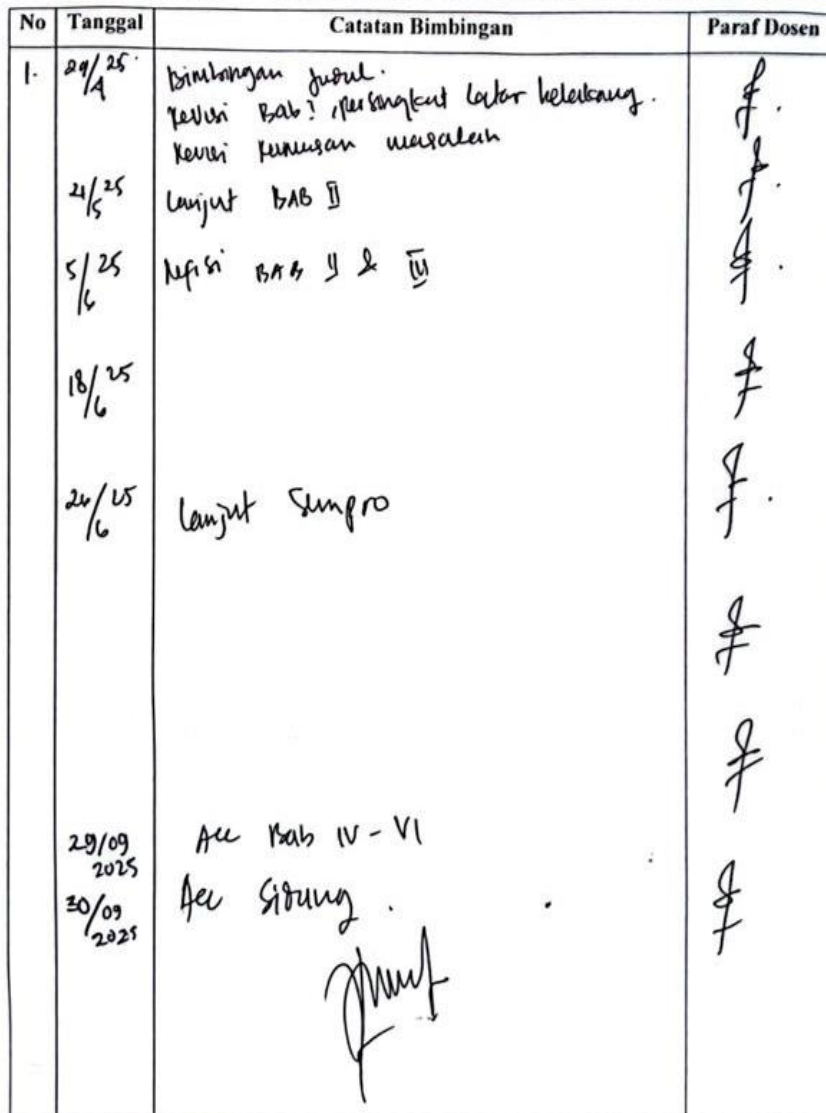 No Tanggal Catatan Bimbingan Paraf Dosen
1. 29/4 25 Bimbingan Judul.
Revisi Bab I, persingkat latar belakang.
Revisi Rumusan masalah
21/5 25 Lanjut BAB II
5/6 25 Revisi BAB II & III
18/6 25
24/6 25 Lanjut Sempro
29/09 2025 Acc Bab IV - VI
30/09 2025 Acc Sidang.